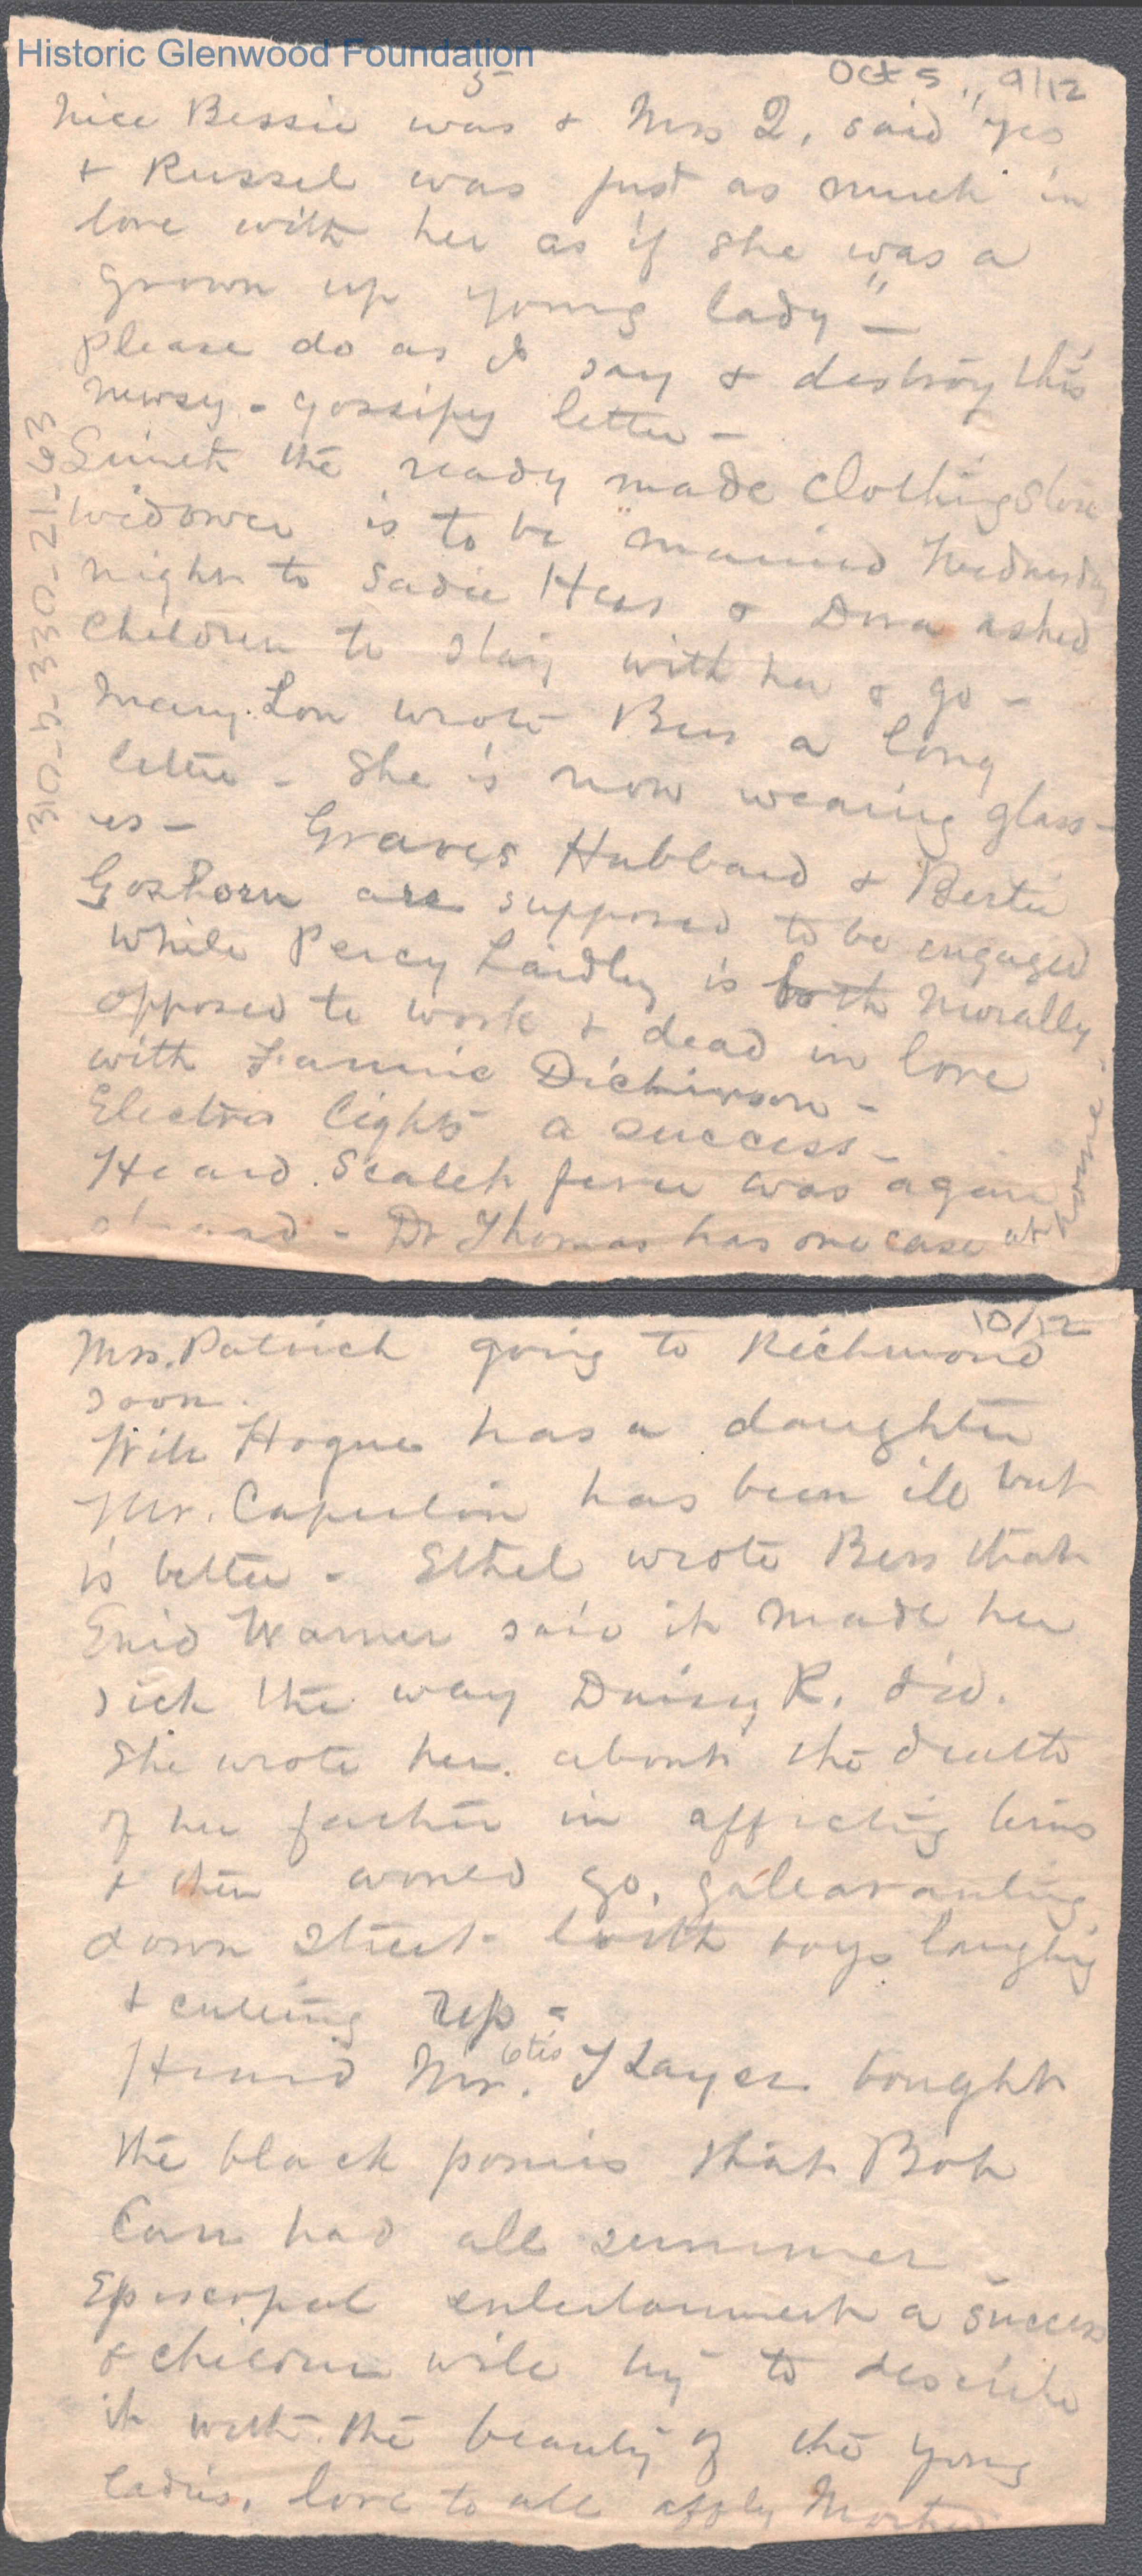 Historic Glenwood Foundation
5
Oct 5, 9/12
nice Bessie was & Mrs Q, said "yes
& Russel was just as much in
love with her as if she was a
grown up young lady" —
Please do as I say & destroy this
newsy - gossipy letter —
the ready made Clothing Store
widower is to be "married Wednesday
night to Sadie Hess & Dora asked
Children to stay with her & go -
Mary Lou wrote Bess a long
letter - She is now wearing glass-
es - Graves Hubbard & Bertie
Goshorn are supposed to be engaged
while Percy Laidley is both morally
opposed to work & dead in love
with Fannie Dickinson -
Electric lights a success -
Heard Scarlet fever was again
- Dr Thomas has one case at home.
310-b-330-21-63
10/12
Mrs. Patrick going to Richmond
soon.
Will Hogue has a daughter
Mr. Caperton has been ill but
is better - Ethel wrote Bess that
Enid Warner said it made her
sick the way Daisy R. did.
She wrote her about the death
of her father in affecting terms
& then would go, galavanting
down street with boys laughing
& cutting up -
Heard Mr. Otis Thayer bought
the black ponies that Bob
Carr had all summer -
Episcopal entertainment a success
& children will try to describe
it with the beauty of the young
ladies. love to all affly Mother